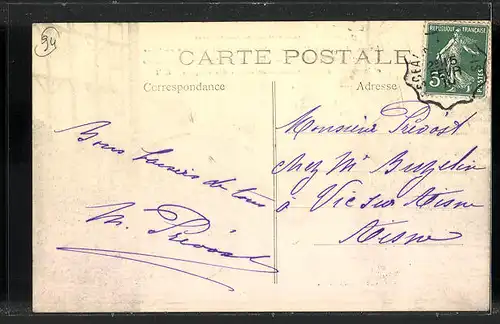 94
CARTE POSTALE
REPUBLIQUE FRANÇAISE
5c
POSTES
Correspondance
Adresse
Bons baisers de tous
M. Prévost
Monsieur Prévost
chez Mr
à Vic sur Aisne
Aisne